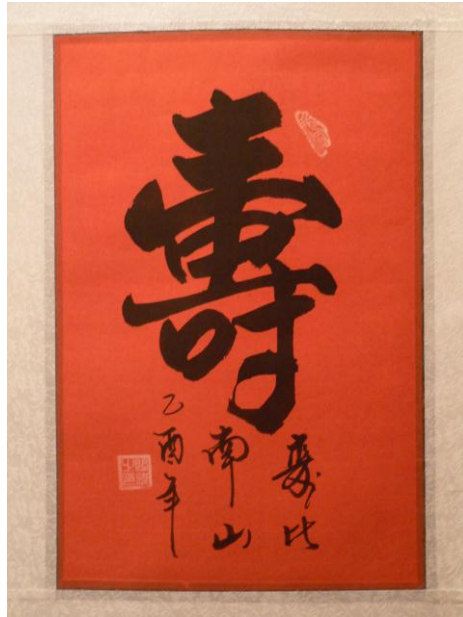 壽
寿比
南山
乙酉年